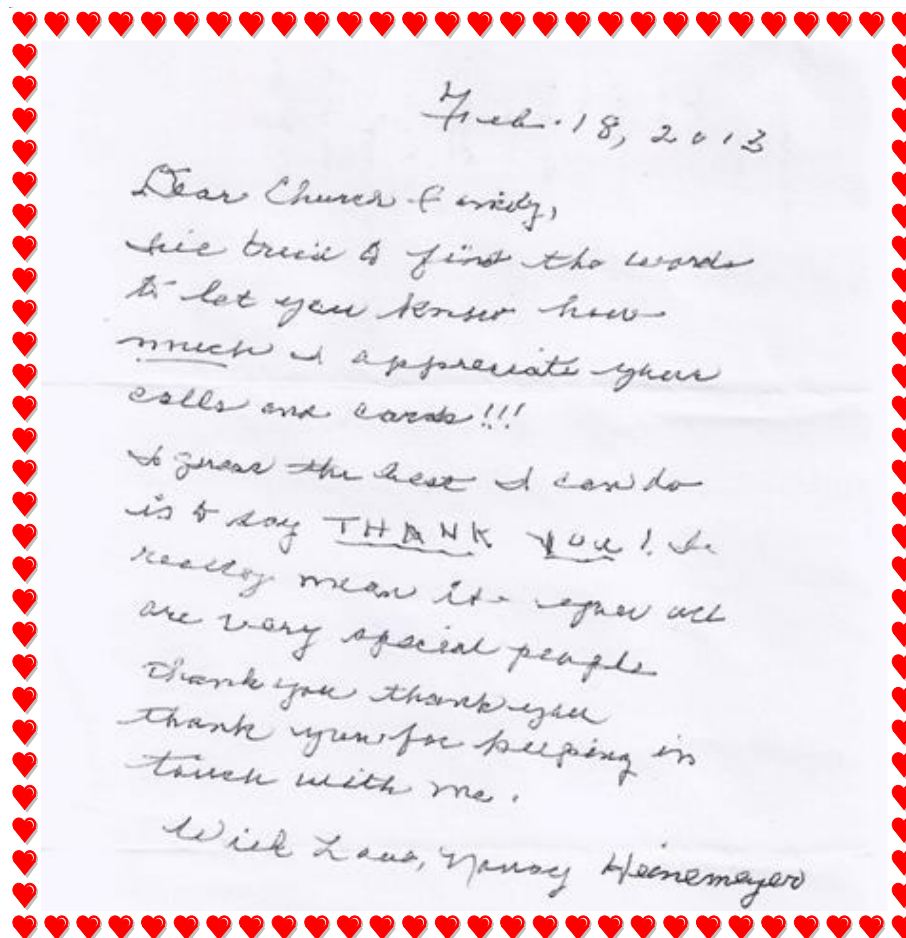 Feb. 18, 2013
Dear Church Family,
I've tried to find the words
to let you know how
much I appreciate your
calls and cards!!!
I guess the best I can do
is to say THANK YOU! I
really mean it - you all
are very special people
thank you thank you
thank you for keeping in
touch with me.
With Love, Nancy Heinemeyer